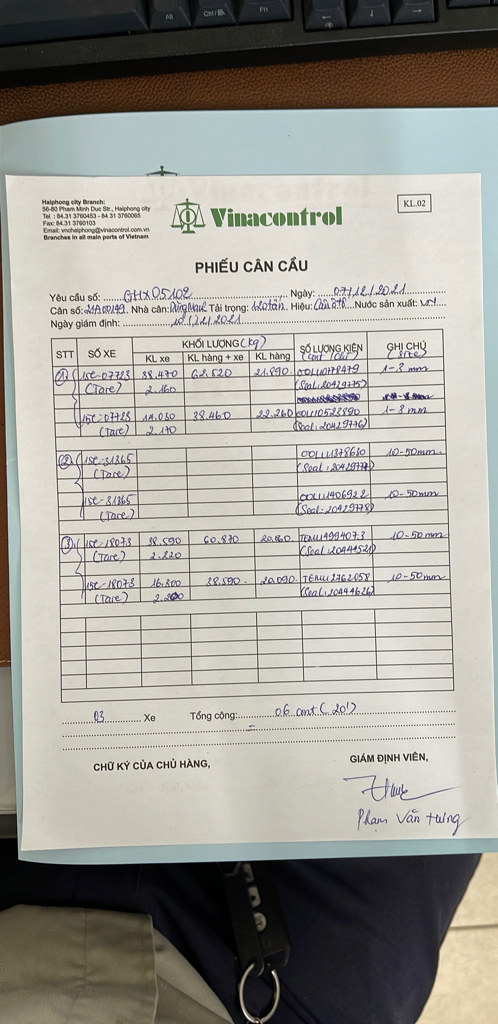 Alt
Ctrl
Fn
Haiphong city Branch:
56-60 Pham Minh Duc Str., Haiphong city
Tel : 84.31 3760453 - 84 31 3760065
Fax: 84.31 3760103
Email: vnchaiphong@vinacontrol.com.vn
Branches in all main ports of Vietnam
Vinacontrol
KL.02
PHIẾU CÂN CẨU
Yêu cầu số: GHX05102 Ngày: 07/12/2021
Cân số: 21A00199. Nhà cân: Tải trọng: 120tấn. Hiệu: Nước sản xuất: VN
Ngày giám định: 12/2021
STT SỐ XE KHỐI LƯỢNG (kg) SỐ LƯỢNG KIỆN (Cont / Chì) GHI CHÚ (size)
KL xe KL hàng + xe KL hàng
1 15C-07723 38.470 62.520 21.890 COLU1178479 1-3 mm
(Tare) 2.160 (Seal: 20429775)
15C-07723 14.030 38.460 22.260 COLU0523890 1-3 mm
(Tare) 2.170 (Seal: 20429776)
2 15C-31365 COLU1378630 10-50mm
(Tare) (Seal: 20429777)
15C-31365 COLU1406922 10-50mm
(Tare) (Seal: 20429778)
3 15C-18073 38.590 60.870 20.060 TEMU1994073 10-50mm
(Tare) 2.220 (Seal: 20444521)
15C-18073 16.300 38.590 20.090 TEMU2762058 10-50mm
(Tare) 2.200 (Seal: 20444626)
03 Xe Tổng cộng: 06 cont (20')
CHỮ KÝ CỦA CHỦ HÀNG,
GIÁM ĐỊNH VIÊN,
Phạm Văn Hưng